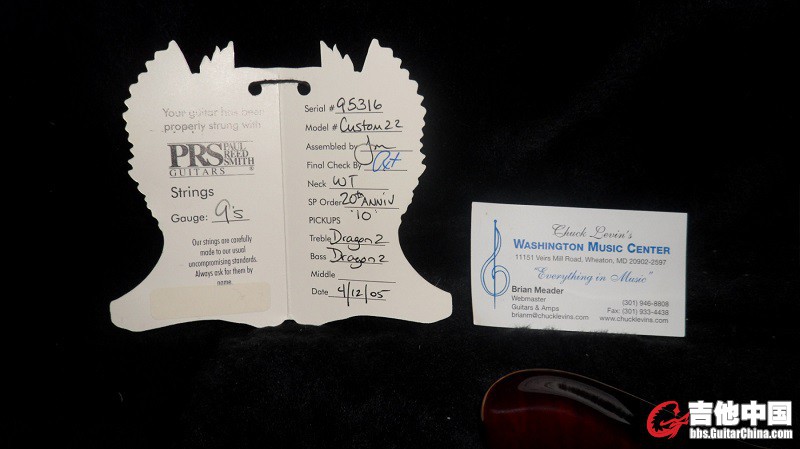 Your guitar has been
properly strung with
PRS PAUL
REED
SMITH
GUITARS ®
Strings
Gauge: 9's
Our strings are carefully
made to our usual
uncompromising standards.
Always ask for them by
name.
Serial # 95316
Model # Custom 22
Assembled by
Final Check By
Neck WT
SP Order 20th ANNIV
'10'
PICKUPS
Treble Dragon 2
Bass Dragon 2
Middle
Date 4/12/05
Chuck Levin's
WASHINGTON MUSIC CENTER
11151 Veirs Mill Road, Wheaton, MD 20902-2597
"Everything in Music"
Brian Meader
Webmaster
Guitars & Amps
brianm@chucklevins.com
(301) 946-8808
Fax: (301) 933-4438
www.chucklevins.com
吉他中国
bbs.GuitarChina.com